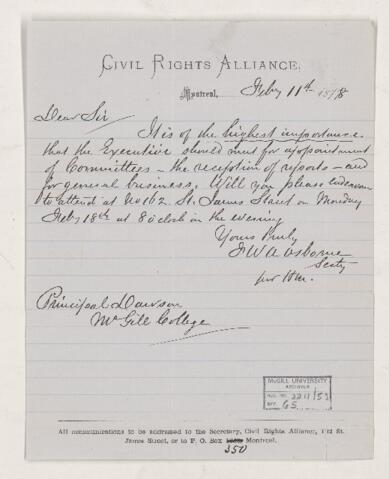 CIVIL RIGHTS ALLIANCE.
Montreal, Feby 11th 1878
Dear Sir
It is of the highest importance
that the Executive should meet for appointment
of Committees – the reception of reports – and
for general business. Will you please endeavour
to attend at No 162 St. James Street on Monday
Feby 18th at 8 oclock in the evening
Yours truly
Osborne
Secty
per
Principal Dawson
McGill College
McGILL UNIVERSITY
ARCHIVES
ACC. NO. 2211/53
REF. 65
All communications to be addressed to the Secretary, Civil Rights Alliance, 162 St.
James Street, or to P. O. Box Montreal.
350